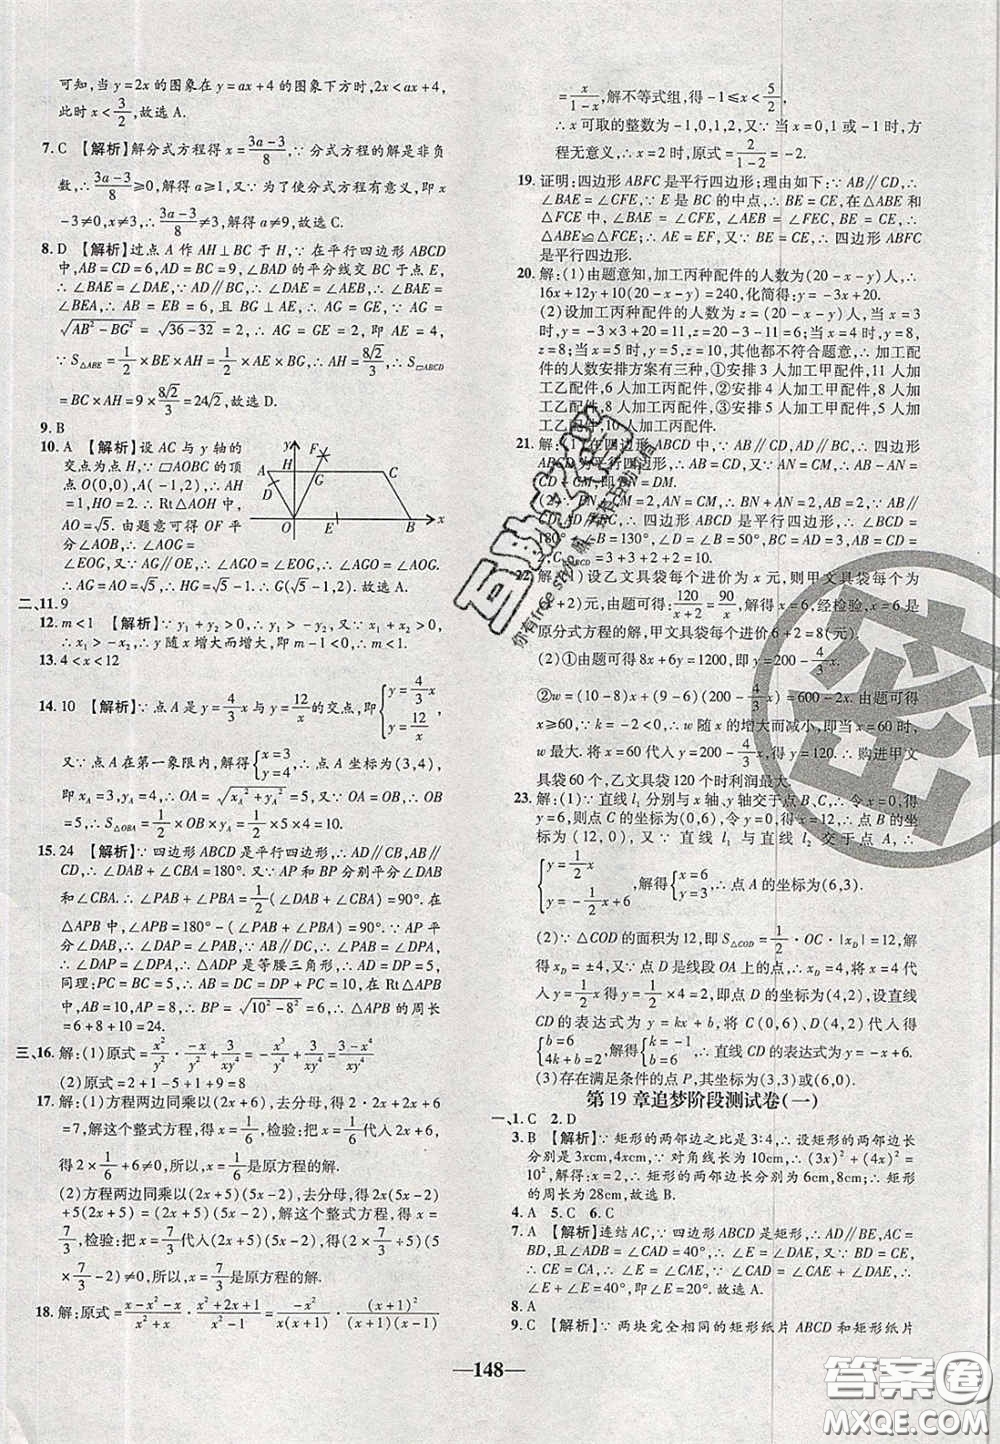 可知,当 y=2x 的图象在 y=ax+4 的图象下方时,2x<ax+4,
此时 x<3/2,故选 A.
7. C 【解析】解分式方程得 x=(3a-3)/8,∵分式方程的解是非负
数,∴(3a-3)/8≥0,解得 a≥1,又∵为了使分式方程有意义,即 x
-3≠0,x≠3,∴(3a-3)/8≠3,解得 a≠9,故选 C.
8. D 【解析】过点 A 作 AH⊥BC 于 H,∵在平行四边形 ABCD
中,AB=CD=6,AD=BC=9,∠BAD 的平分线交 BC 于点 E,
∴∠BAE=∠DAE,∵AD∥BC,∴∠DAE=∠AEB,∴∠BAE=
∠BEA,∴AB=EB=6,且 BG⊥AE,∴AG=GE,∵AG=
√(AB²-BG²)=√(36-32)=2,∴AG=GE=2,即 AE=4,
∵S△ABE=1/2×BE×AH=1/2×AE×BG,∴AH=8√2/3,∴S▱ABCD
=BC×AH=9×8√2/3=24√2,故选 D.
9. B
10. A 【解析】设 AC 与 y 轴的
交点为点 H,∵▱AOBC 的顶
点 O(0,0),A(-1,2),∴AH
=1,HO=2.∴Rt△AOH 中,
AO=√5.由题意可得 OF 平
分∠AOB,∴∠AOG=
∠EOG,又∵AG∥OE,∴∠AGO=∠EOG,∴∠AGO=∠AOG,
∴AG=AO=√5,∴HG=√5-1,∴G(√5-1,2),故选 A.
y F A H C D G O E B x
二、11. 9
12. m<1 【解析】∵y₁+y₂>0,∴y₁>-y₂,∵x₁+x₂>0,
∴x₁>-x₂,∴y 随 x 增大而增大,∴1-m>0,∴m<1.
13. 4<x<12
14. 10 【解析】∵点 A 是 y=4/3x 与 y=12/x 的交点,即{y=4/3x y=12/x
又∵点 A 在第一象限内,解得{x=3 y=4,∴点 A 坐标为(3,4),
即 xA=3,yA=4.∴OA=√(xA²+yA²)=5,又∵OA=OB,∴OB
=5,∴S△OBA=1/2×OB×yA=1/2×5×4=10.
15. 24 【解析】∵四边形 ABCD 是平行四边形,∴AD∥CB,AB∥
CD,∴∠DAB+∠CBA=180°.又∵AP 和 BP 分别平分∠DAB
和∠CBA,∴∠PAB+∠PBA=1/2(∠DAB+∠CBA)=90°.在
△APB 中,∠APB=180°-(∠PAB+∠PBA)=90°.∵AP 平
分∠DAB,∴∠DAP=∠PAB,∵AB∥CD,∴∠PAB=∠DPA,
∴∠DAP=∠DPA,∴△ADP 是等腰三角形,∴AD=DP=5,
同理:PC=BC=5,即 AB=DC=DP+PC=10,在 Rt△APB
中,AB=10,AP=8,∴BP=√(10²-8²)=6,∴△APB 的周长
=6+8+10=24.
三、16. 解:(1)原式=x²/y²·-y/x·3/xy⁴=-x/y+3/xy⁴=(3-x)/xy⁴
(2)原式=2+1-5+1+9=8
17. 解:(1)方程两边同乘以 2(3x-1),去分母,得-2+6x-2=
7,解这个整式方程,得 x=1/6,检验:把 x=1/6 代入 2(3x-1),
得 2(1/2-1)≠0,所以,x=1/6 是原方程的解;
(2)方程两边同乘以(2x+5)(5x-2),去分母,得 2x(5x-2)
+5(2x+5)=(2x+5)(5x-2),解这个整式方程,得 x=
7/3,检验:把 x=7/3 代入(2x+5)(5x-2),得(2×7/3+5)(5
×7/3-2)≠0,所以,x=7/3 是原方程的解;
18. 解:原式=(x-x²-x)/(x²+x)·(x²+2x+1)/(x²-1)=-x²/(x(x+1))·(x+1)²/((x+1)(x-1))
=x/(1-x),解不等式组,得-1≤x<5/2,
∴x 可取的整数为-1,0,1,2,又∵当 x=0,1 或-1 时,方
程无意义,∴x=2,当 x=2 时,原式=2/(1-2)=-2.
19. 证明:四边形 ABFC 是平行四边形;理由如下:∵AB∥CD,∴
∠BAE=∠CFE,∵E 是 BC 的中点,∴BE=CE,在△ABE 和
△FCE 中,∠BAE=∠CFE,∠AEB=∠FEC,BE=CE,∴
△ABE≌△FCE,∴AE=EF,又∵BE=CE,∴四边形 ABFC
是平行四边形.
20. 解:(1)由题意知,加工丙种配件的人数为(20-x-y)人,∴
16x+12y+10(20-x-y)=240,化简得:y=-3x+20.
(2)设加工丙种配件的人数为 z=(20-x-y)人,当 x=3 时,
y=11,z=6;当 x=4 时,y=8,z=8;当 x=5 时,y=5,z=10,其他都不符合题意,∴加工配
件的人数安排方案有三种,①安排 3 人加工甲配件,11 人加
工乙配件,6 人加工丙配件;②安排 4 人加工甲配件,8 人加
工乙配件,8 人加工丙配件;③安排 5 人加工甲配件,5 人加
工乙配件,10 人加工丙配件.
21. 解:(1)在四边形 ABCD 中,∵AB∥CD,∴四边形
ABCD 为平行四边形.∴AB=CD,又∵AN=CM,∴AB-AN=
CD-CM,即 BN=DM.
(2)∵BN=CM,AN=CM,∴BN+AN=2CM,即 AB=
2CM=6,∵四边形 ABCD 是平行四边形,∴∠BCD=
180°-∠B=130°,∠D=∠B=50°,BC=AD=3,∴
=3+3+2+2=10.
22. 解:(1)设乙文具袋每个进价为 x 元,则甲文具袋每个为
(x+2)元,由题意得:120/(x+2)=90/x,解得 x=6,经检验,x=6 是
原分式方程的解,甲文具袋每个进价 6+2=8(元).
(2)①由题可得 8x+6y=1200,即 y=200-4/3x.
②w=(10-8)x+(9-6)(200-4/3x)=600-2x.由题可得
x≥60,∵k=-2<0,∴w 随 x 的增大而减小,即当 x=60 时,
w 最大.将 x=60 代入 y=200-4/3x,得 y=120.∴购进甲文
具袋 60 个,乙文具袋 120 个时利润最大.
23. 解:(1)∵直线 l₁ 分别与 x 轴、y 轴交于点 B、C,∴令 x=0,
y=6,则点 C 的坐标为(0,6),令 y=0,x=12,则点 B 的坐
标为(12,0),又∵直线 l₁ 与直线 l₂ 交于点 A,∴
{y=1/2x y=-1/2x+6,解得{x=6 y=3,∴点 A 的坐标为(6,3).
(2)∵△COD 的面积为 12,即 S△COD=1/2·OC·|xD|=12,解
得 xD=±4,又∵点 D 是线段 OA 上的点,∴xD=4,将 xD=4 代
入 y=1/2x,解得 yD=2,即点 D 的坐标为(4,2),设直线
CD 的表达式为 y=kx+b,将 C(0,6),D(4,2)代入得
{b=6 4k+b=2,解得{b=6 k=-1,∴直线 CD 的表达式为 y=-x+6.
(3)存在满足条件的点 P,其坐标为(3,3)或(6,0).
第 19 章追梦阶段测试卷(一)
一、1. C 2. D
3. B 【解析】∵矩形的两邻边之比是 3:4,∴设矩形的两邻边长
分别是 3xcm,4xcm,∵对角线长为 10,∴(3x)²+(4x)²=
10²,解得 x=2,∴矩形的两邻边长分别为 6cm,8cm;∴矩形
的周长为 28cm,故选 B.
4. A 5. C 6. C
7. A 【解析】连结 AC,∵四边形 ABCD 是矩形,∴AD∥BE,AC=
BD,且∠ADB=∠CAD=40°,∴∠E=∠DAE,又∵BD=CE,
∴CE=CA,∴∠E=∠CAE,∵∠CAD=∠CAE+∠DAE,∴
∠E+∠E=40°,即∠E=20°.故选 A.
8. A
9. C 【解析】∵两块完全相同的矩形纸片 ABCD 和矩形纸片
—148—
答案圈
MXQE.COM